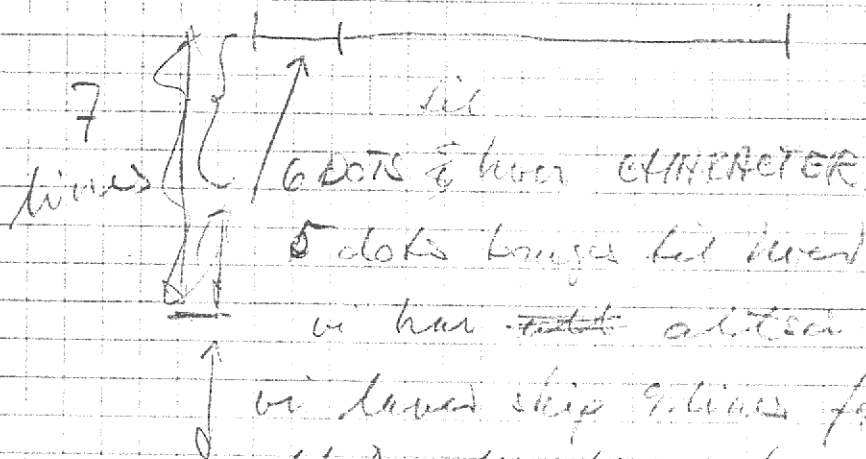 til
7 lines
6 DOTS hver CHARACTER
5 dots bruges til hvert
vi har altså
vi laver skip 9. lines